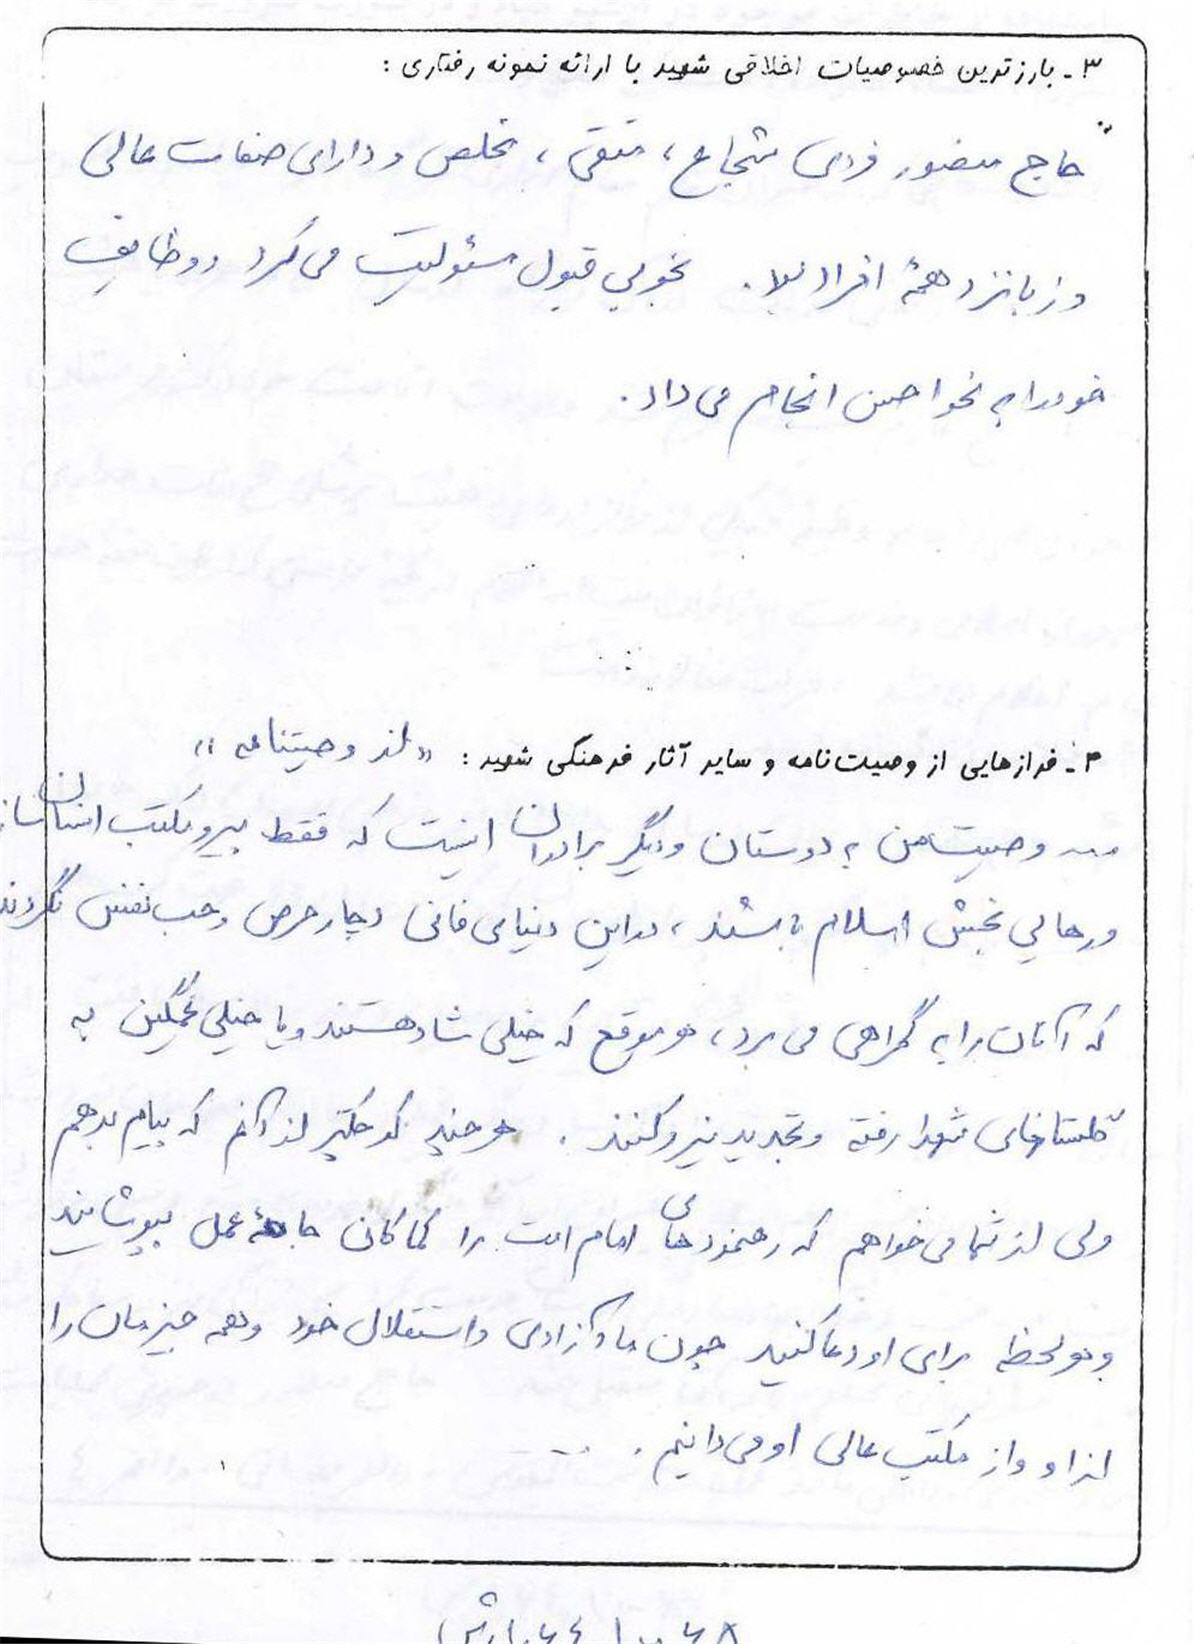 ۳ـ بارزترین خصوصیات اخلاقی شهید با ارائه نمونه رفتاری :
حاج منصور فردی شجاع ، متقی ، مخلص و دارای صفات عالی
و زبانزد همهٔ افراد بود . بخوبی قبول مسئولیت می کرد و وظایف
خود را به نحو احسن انجام می داد .
۴ـ فرازهایی از وصیت‌نامه و سایر آثار فرهنگی شهید : « از وصیتنامه »
... وصیت من به دوستان و دیگر برادران اینست که فقط پیرو مکتب انسان ساز
و رهایی بخش اسلام باشند ، در این دنیای فانی دچار حرص و حب نفس نگردند
که آنان را به گمراهی می برد ، هر موقع که خیلی شاد هستند و یا خیلی غمگین به
گلستانهای شهدا رفته و تجدید نیرو کنند . هر چند کوچکتر از آنم که پیام بدهم
ولی از شما می خواهم که رهنمودهای امام امت را کماکان جامهٔ عمل بپوشانید
و هر لحظه برای او دعا کنید چون ما آزادی و استقلال خود و همه چیزمان را
از او و از مکتب عالی او می دانیم . ...